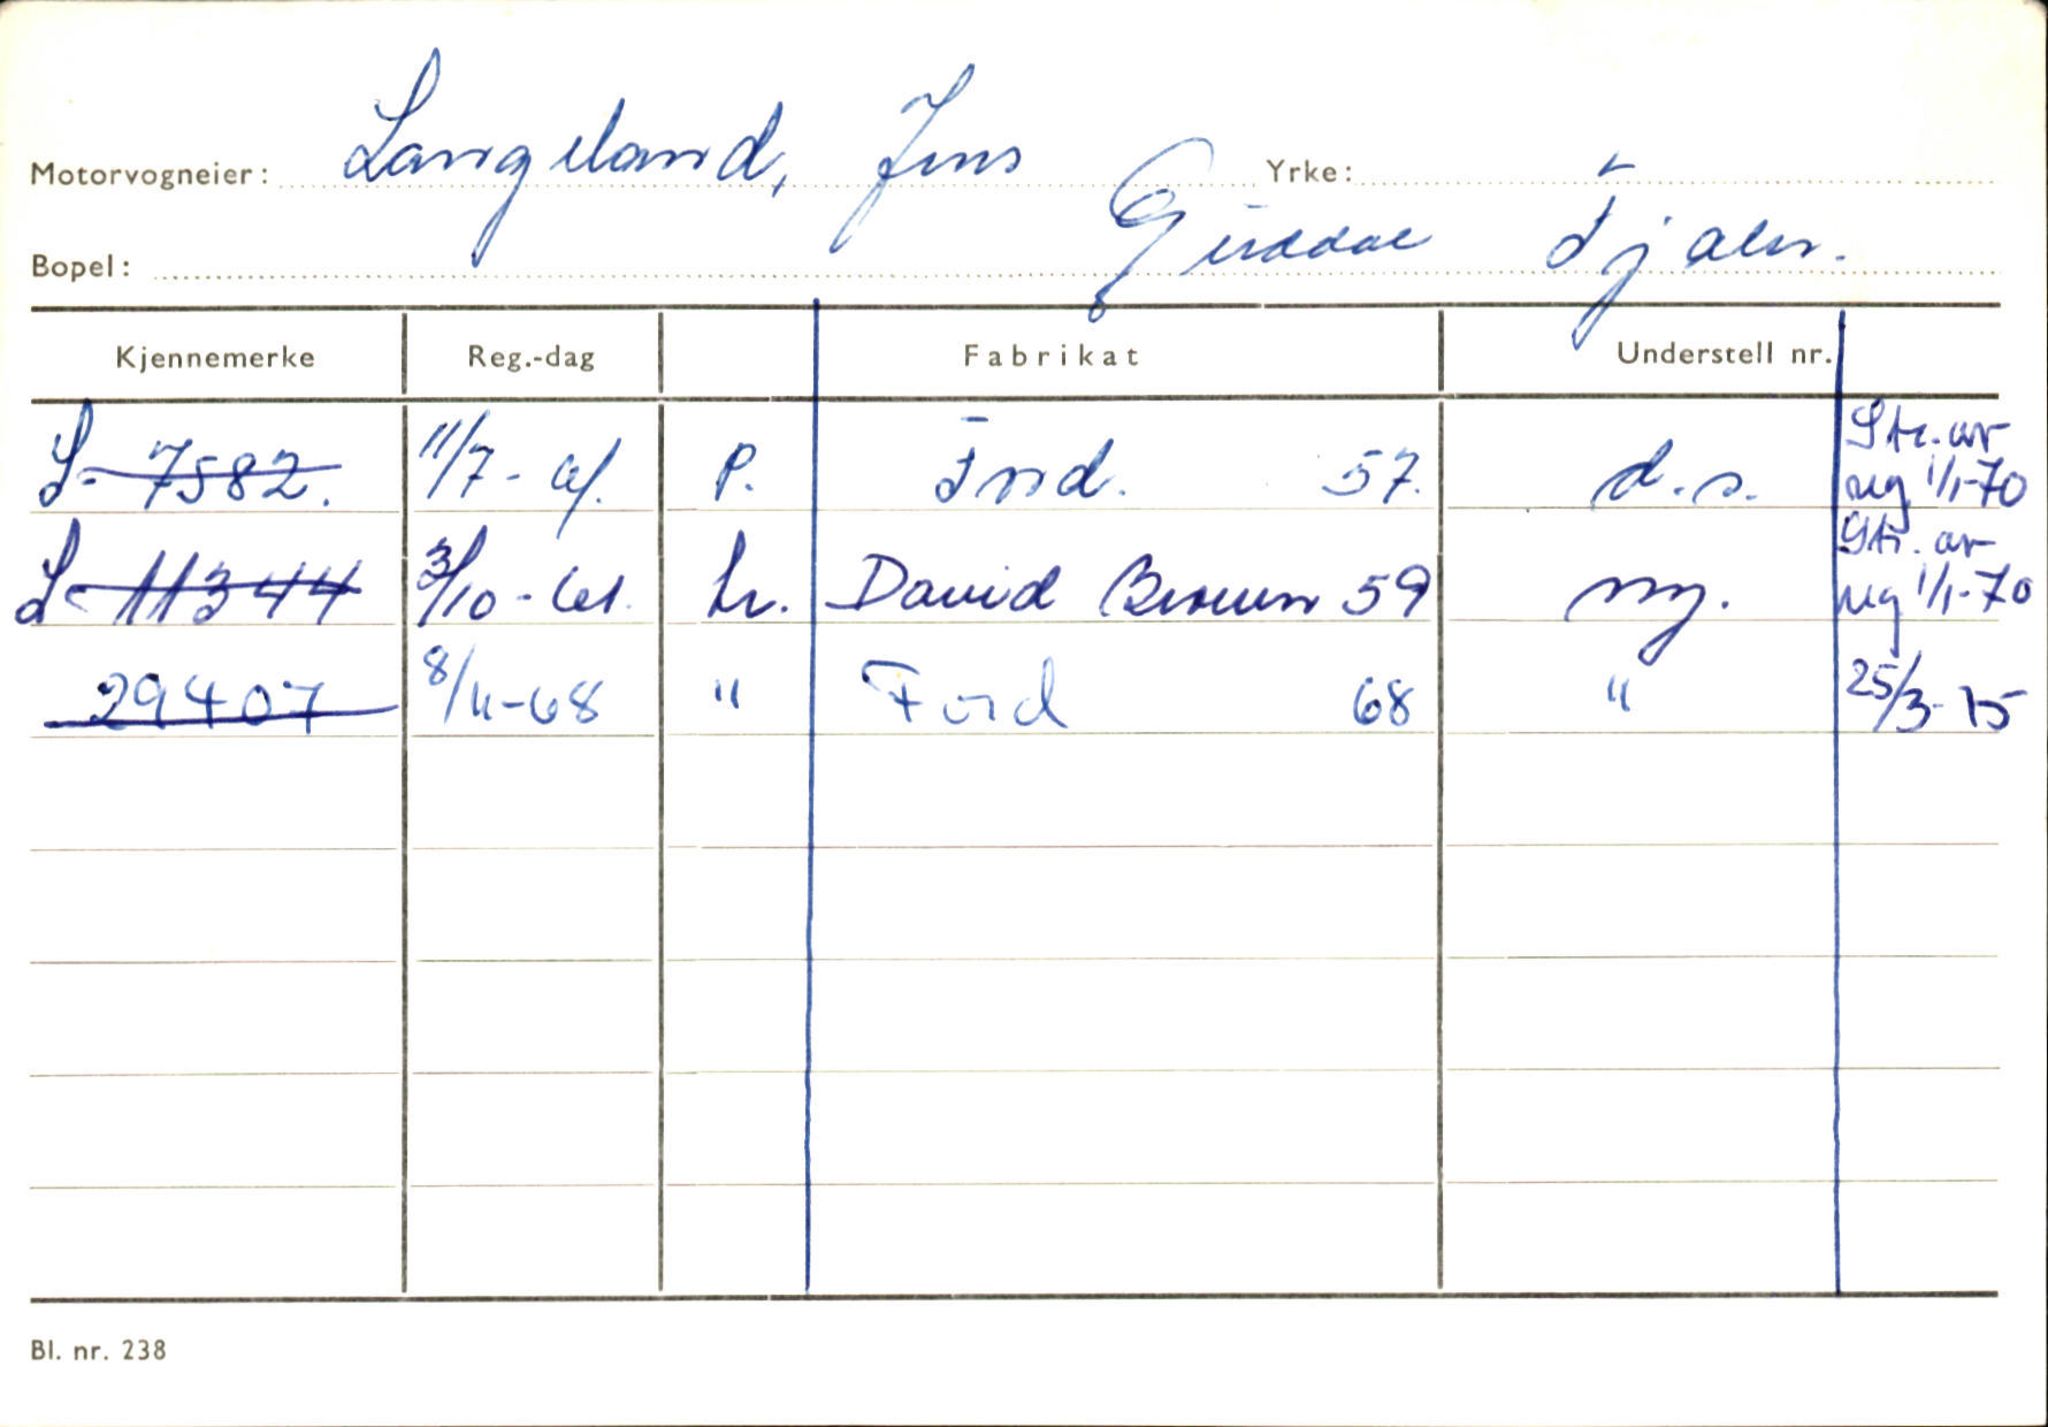 Motorvogneier: Langeland, Jens Yrke:
Bopel: Guddal Fjaler.
Kjennemerke Reg.-dag Fabrikat Understell nr.
S- 7582. 11/7- 61. P. Ford. 57. d.s. Str. av
reg 1/1-70
S- 11344 3/10-61. Tr. David Brown 59 ny. Str. av
reg 1/1-70
29407 8/11-68 " Ford 68 " 25/3-75
Bl. nr. 238